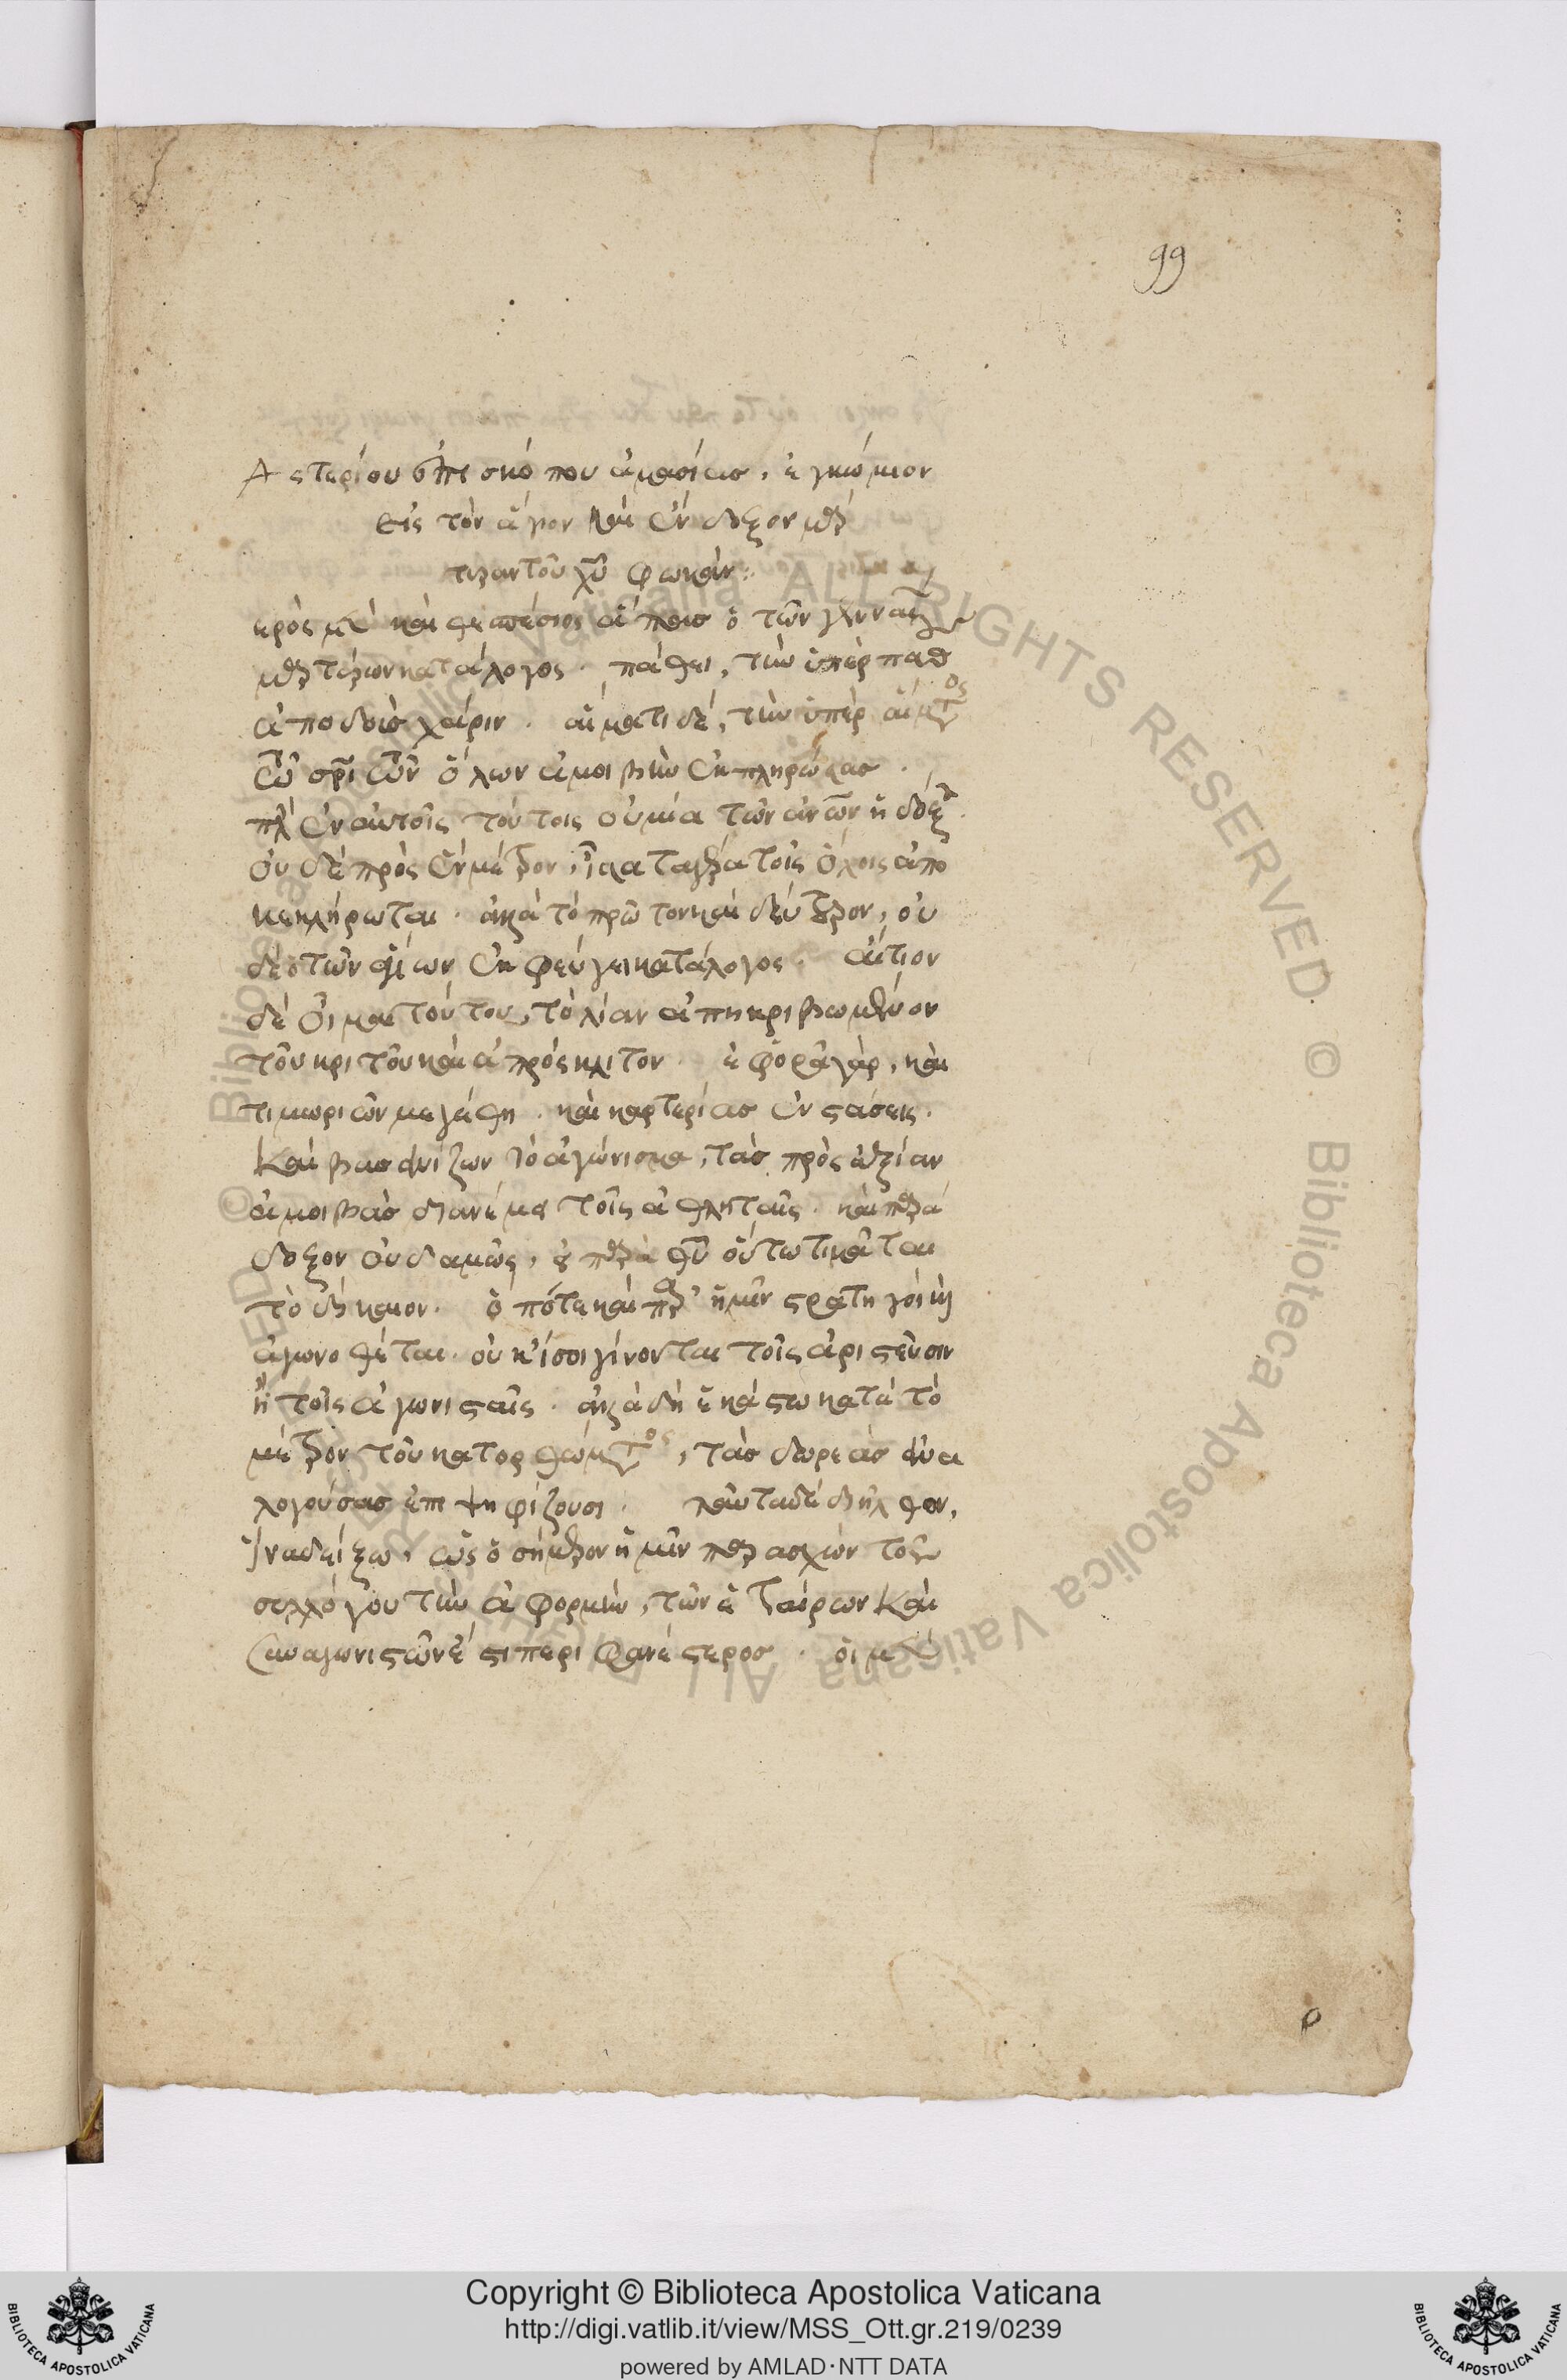 99
Ἀστερίου ἐπισκόπου ἀμασίας, ἐγκώμιον
εἰς τὸν ἅγιον καὶ ἔνδοξον μάρ
τυρα τοῦ χυ φωκᾶν:
ερὸς μὲν καὶ θεσπέσιος ἅπας ὁ τῶν γενναί
μαρτύρων κατάλογος. πάθει, τὴν ὑπὲρ παθ
ἀποδοὺς χάριν. αἵματι δὲ, τὴν ὑπὲρ αἵμτος
τοῦ σρι τῶν ὅλων ἀμοιβὴν ἐκπληρώσας.
πλ ἐν αὐτοῖς τούτοις οὐ μία τῶν ανων ἡ δόξα.
οὐδὲ πρὸς ἓν μέτρον, ἴσα τὰ γέρα τοῖς ὅλοις ἀπο
κεκλήρωται. ἀλλὰ τὸ πρῶτον καὶ δεύτερον, οὐ
δὲ ὁ τῶν ἁγίων ἐκφεύγει κατάλογος. αἴτιον
δὲ οἶμαι τούτου, τὸ λίαν ἀπηκριβωμένον
τοῦ κριτοῦ καὶ ἀπρόσκλιτον. ἐφορᾷ γὰρ, καὶ
τιμωριῶν μεγέθη. καὶ καρτερίας ἐνστάσεις.
καὶ βασανίζων τὸ ἀγώνισμα, τὰς πρὸς ἀξίαν
ἀμοιβὰς διανέμει τοῖς ἀθληταῖς. καὶ παρά
δοξον οὐδαμῶς, εἰ παρὰ θυ οὕτω τιμᾶται
τὸ δίκαιον. ὁπότε καὶ παρ' ἡμῖν στρατηγοὶ καὶ
ἀγωνοθέται. οὐκ ἴσοι γίνονται τοῖς ἀριστεῦσιν
ἢ τοῖς ἀγωνισταῖς. ἀλλὰ δὴ ἑκάστω κατὰ τὸ
μέτρον τοῦ κατορθώμτος, τὰς δωρεὰς ἀνα
λογούσας ἐπιψηφίζουσι. ταῦτα δὲ διῆλθον,
ἵνα δείξω, ὡς ὁ σήμερον ἡμῖν παρασχὼν τοῦ
συλλόγου τὴν ἀφορμὴν, τῶν ἑταίρων καὶ
συναγωνιστῶν ἐστι περιφανέστερος. οἱ μὲν
ρ
© Biblioteca Apostolica Vaticana ALL RIGHTS RESERVED
Copyright © Biblioteca Apostolica Vaticana
http://digi.vatlib.it/view/MSS_Ott.gr.219/0239
powered by AMLAD·NTT DATA
BIBLIOTECA APOSTOLICA VATICANA
BIBLIOTECA APOSTOLICA VATICANA